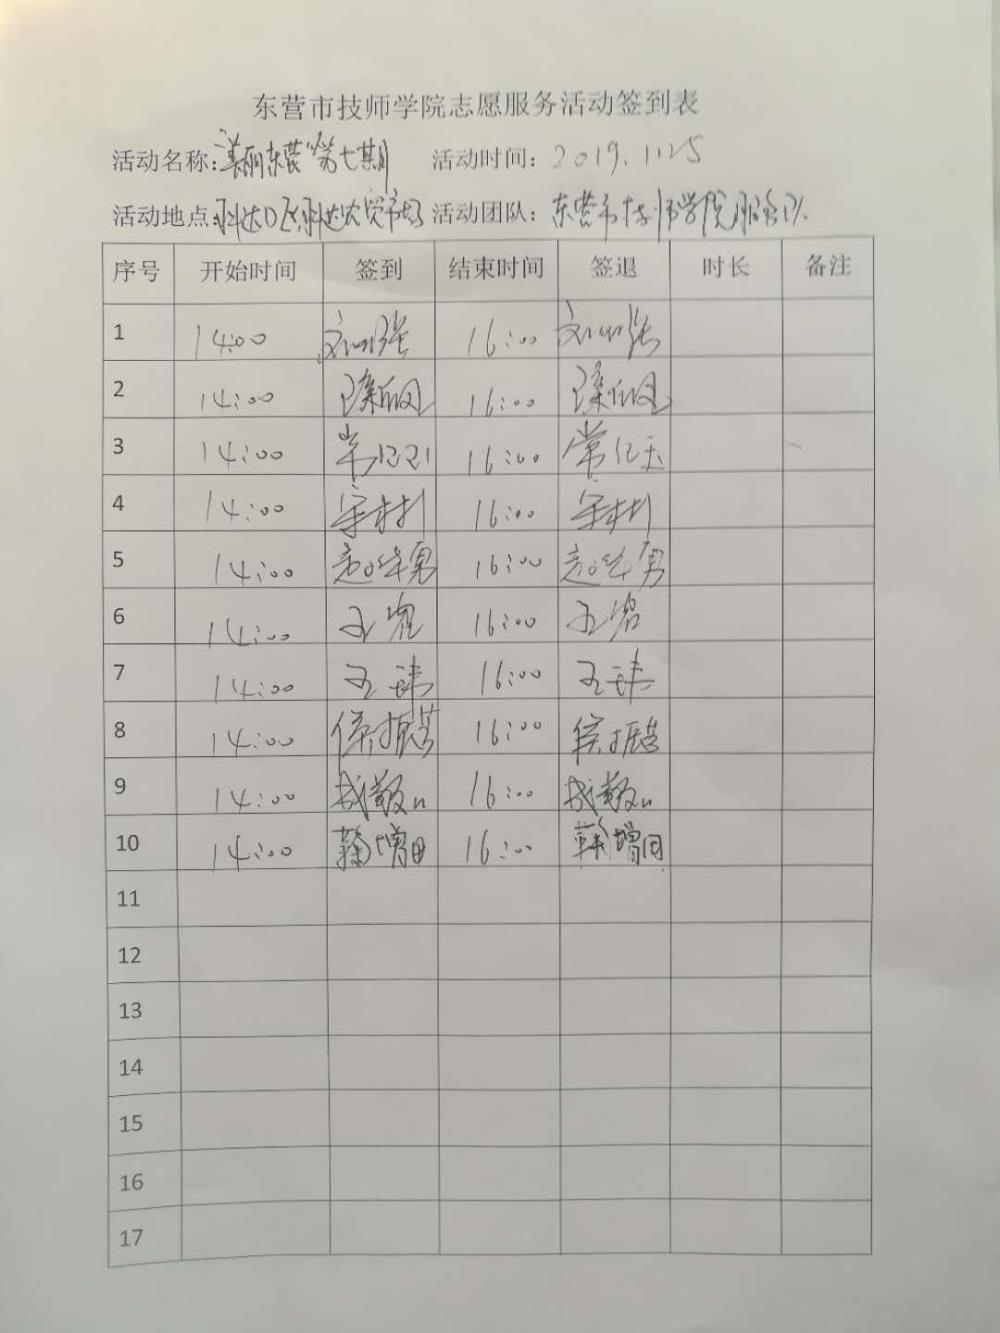 东营市技师学院志愿服务活动签到表
活动名称:"美丽东营"第七期 活动时间: 2019.1125
活动地点: 活动团队: 东营市技师学院服务队
序号 开始时间 签到 结束时间 签退 时长 备注
1 14:00 16:00
2 14:00 16:00
3 14:00 16:00 常亿玉
4 14:00 宋彬 16:00 宋彬
5 14:00 赵华勇 16:00 赵华勇
6 14:00 王岩 16:00 王岩
7 14:00 16:00
8 14:00 侯振营 16:00 侯振营
9 14:00 16:00
10 14:00 鞠增田 16:00 鞠增田
11
12
13
14
15
16
17